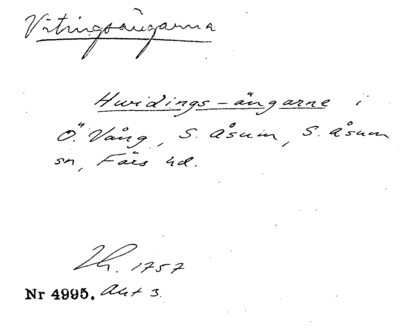 Vitringsängarna
Hvidings-ängarne i
Ö. Vång, S. Åsum, S. Åsum
sn, Färs hd.
1757
Nr 4995. Akt 3.